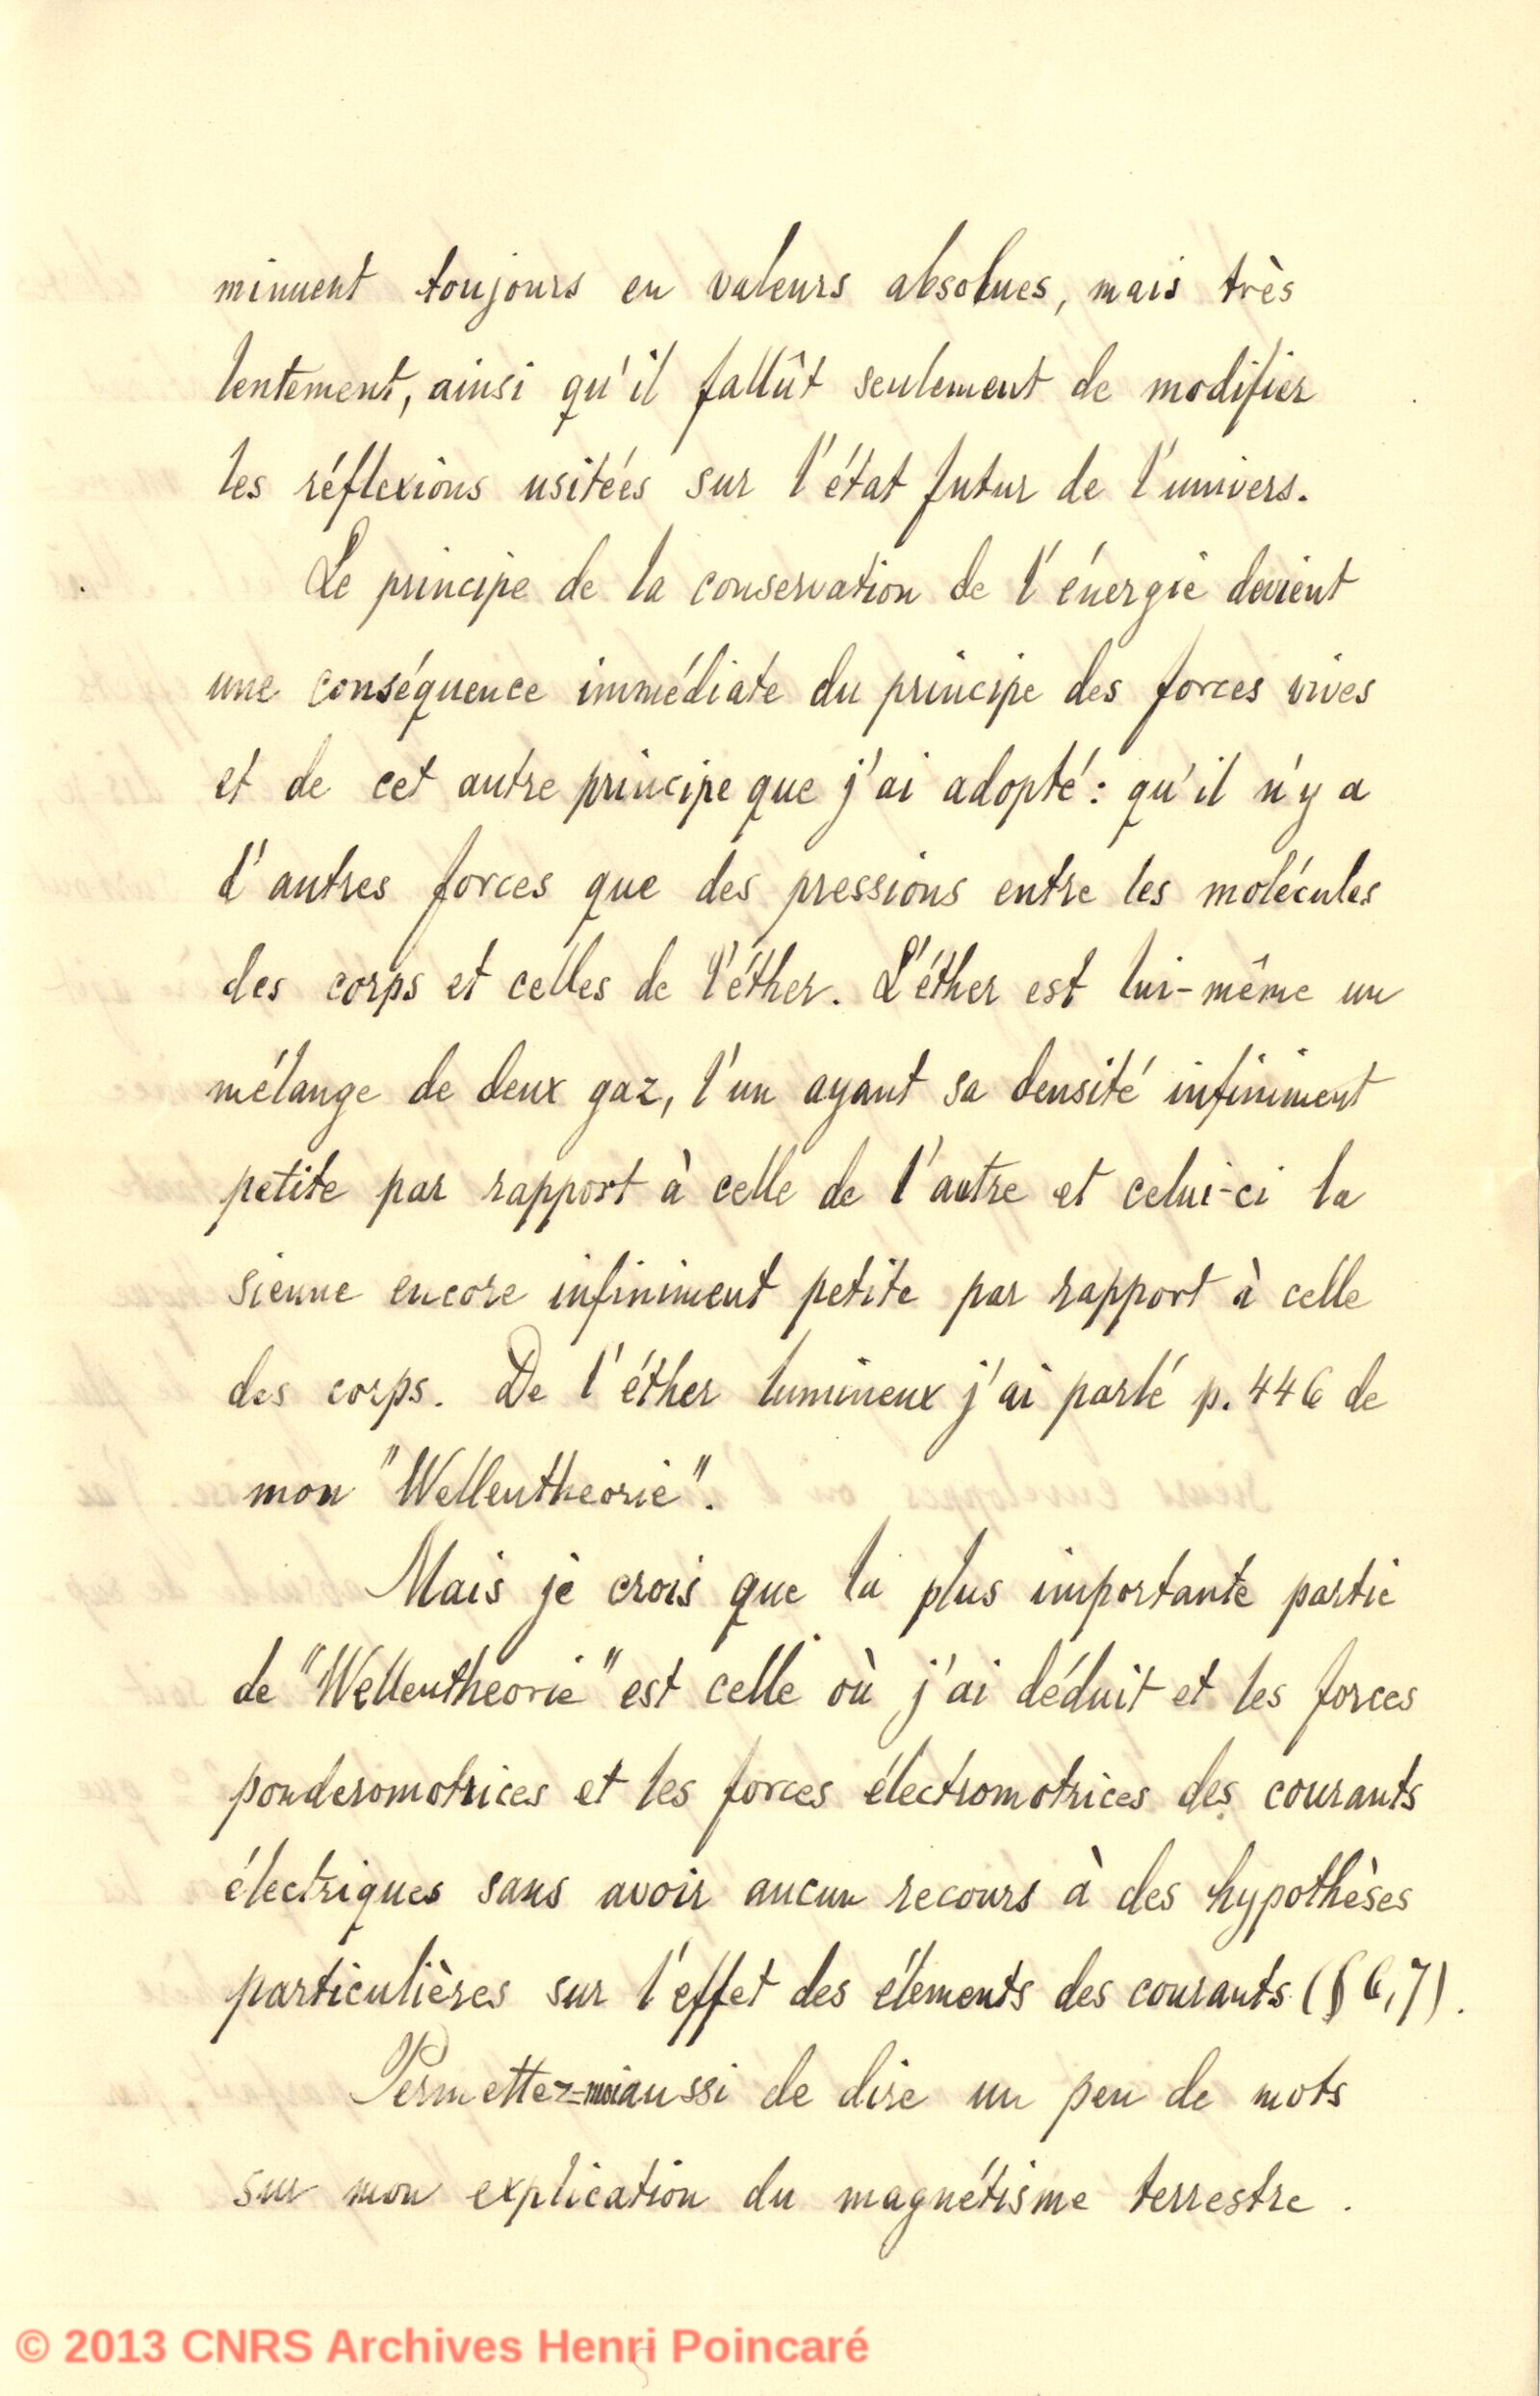 minuent toujours en valeurs absolues, mais très
lentement, ainsi qu'il fallût seulement de modifier
les réflexions usitées sur l'état futur de l'univers.
Le principe de la conservation de l'énergie devient
une conséquence immédiate du principe des forces vives
et de cet autre principe que j'ai adopté: qu'il n'y a
d'autres forces que des pressions entre les molécules
des corps et celles de l'éther. L'éther est lui-même un
mélange de deux gaz, l'un ayant sa densité infiniment
petite par rapport à celle de l'autre et celui-ci la
sienne encore infiniment petite par rapport à celle
des corps. De l'éther lumineux j'ai parlé p. 446 de
mon "Wellentheorie".
Mais je crois que la plus importante partie
de "Wellentheorie" est celle où j'ai déduit et les forces
ponderomotrices et les forces électromotrices des courants
électriques sans avoir aucun recours à des hypothèses
particulières sur l'effet des élements des courants (§ 6,7).
Permettez-moi aussi de dire un peu de mots
sur mon explication du magnétisme terrestre.
© 2013 CNRS Archives Henri Poincaré